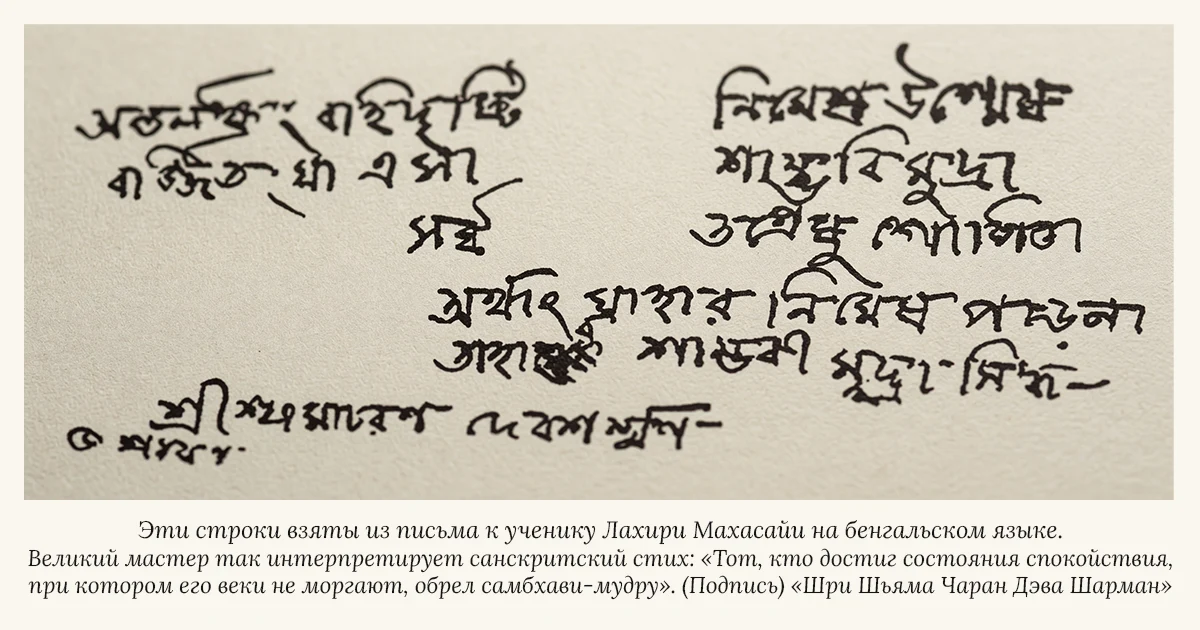 অন্তর্লক্ষ্য বাহিদৃষ্টি নিমেষ উন্মেষ
বর্জ্জিত এ সা শাম্ভবি মুদ্রা
সর্ব্ব গোপিতা
অর্থাৎ যাহার নিমেষ পড়েনা
তাহার শাম্ভবী মুদ্রা সিদ্ধ—
শ্রী শ্যামাচরণ দেবশর্ম্মণ—
Эти строки взяты из письма к ученику Лахири Махасайи на бенгальском языке.
Великий мастер так интерпретирует санскритский стих: «Тот, кто достиг состояния спокойствия,
при котором его веки не моргают, обрел самбхави-мудру». (Подпись) «Шри Шьяма Чаран Дэва Шарман»